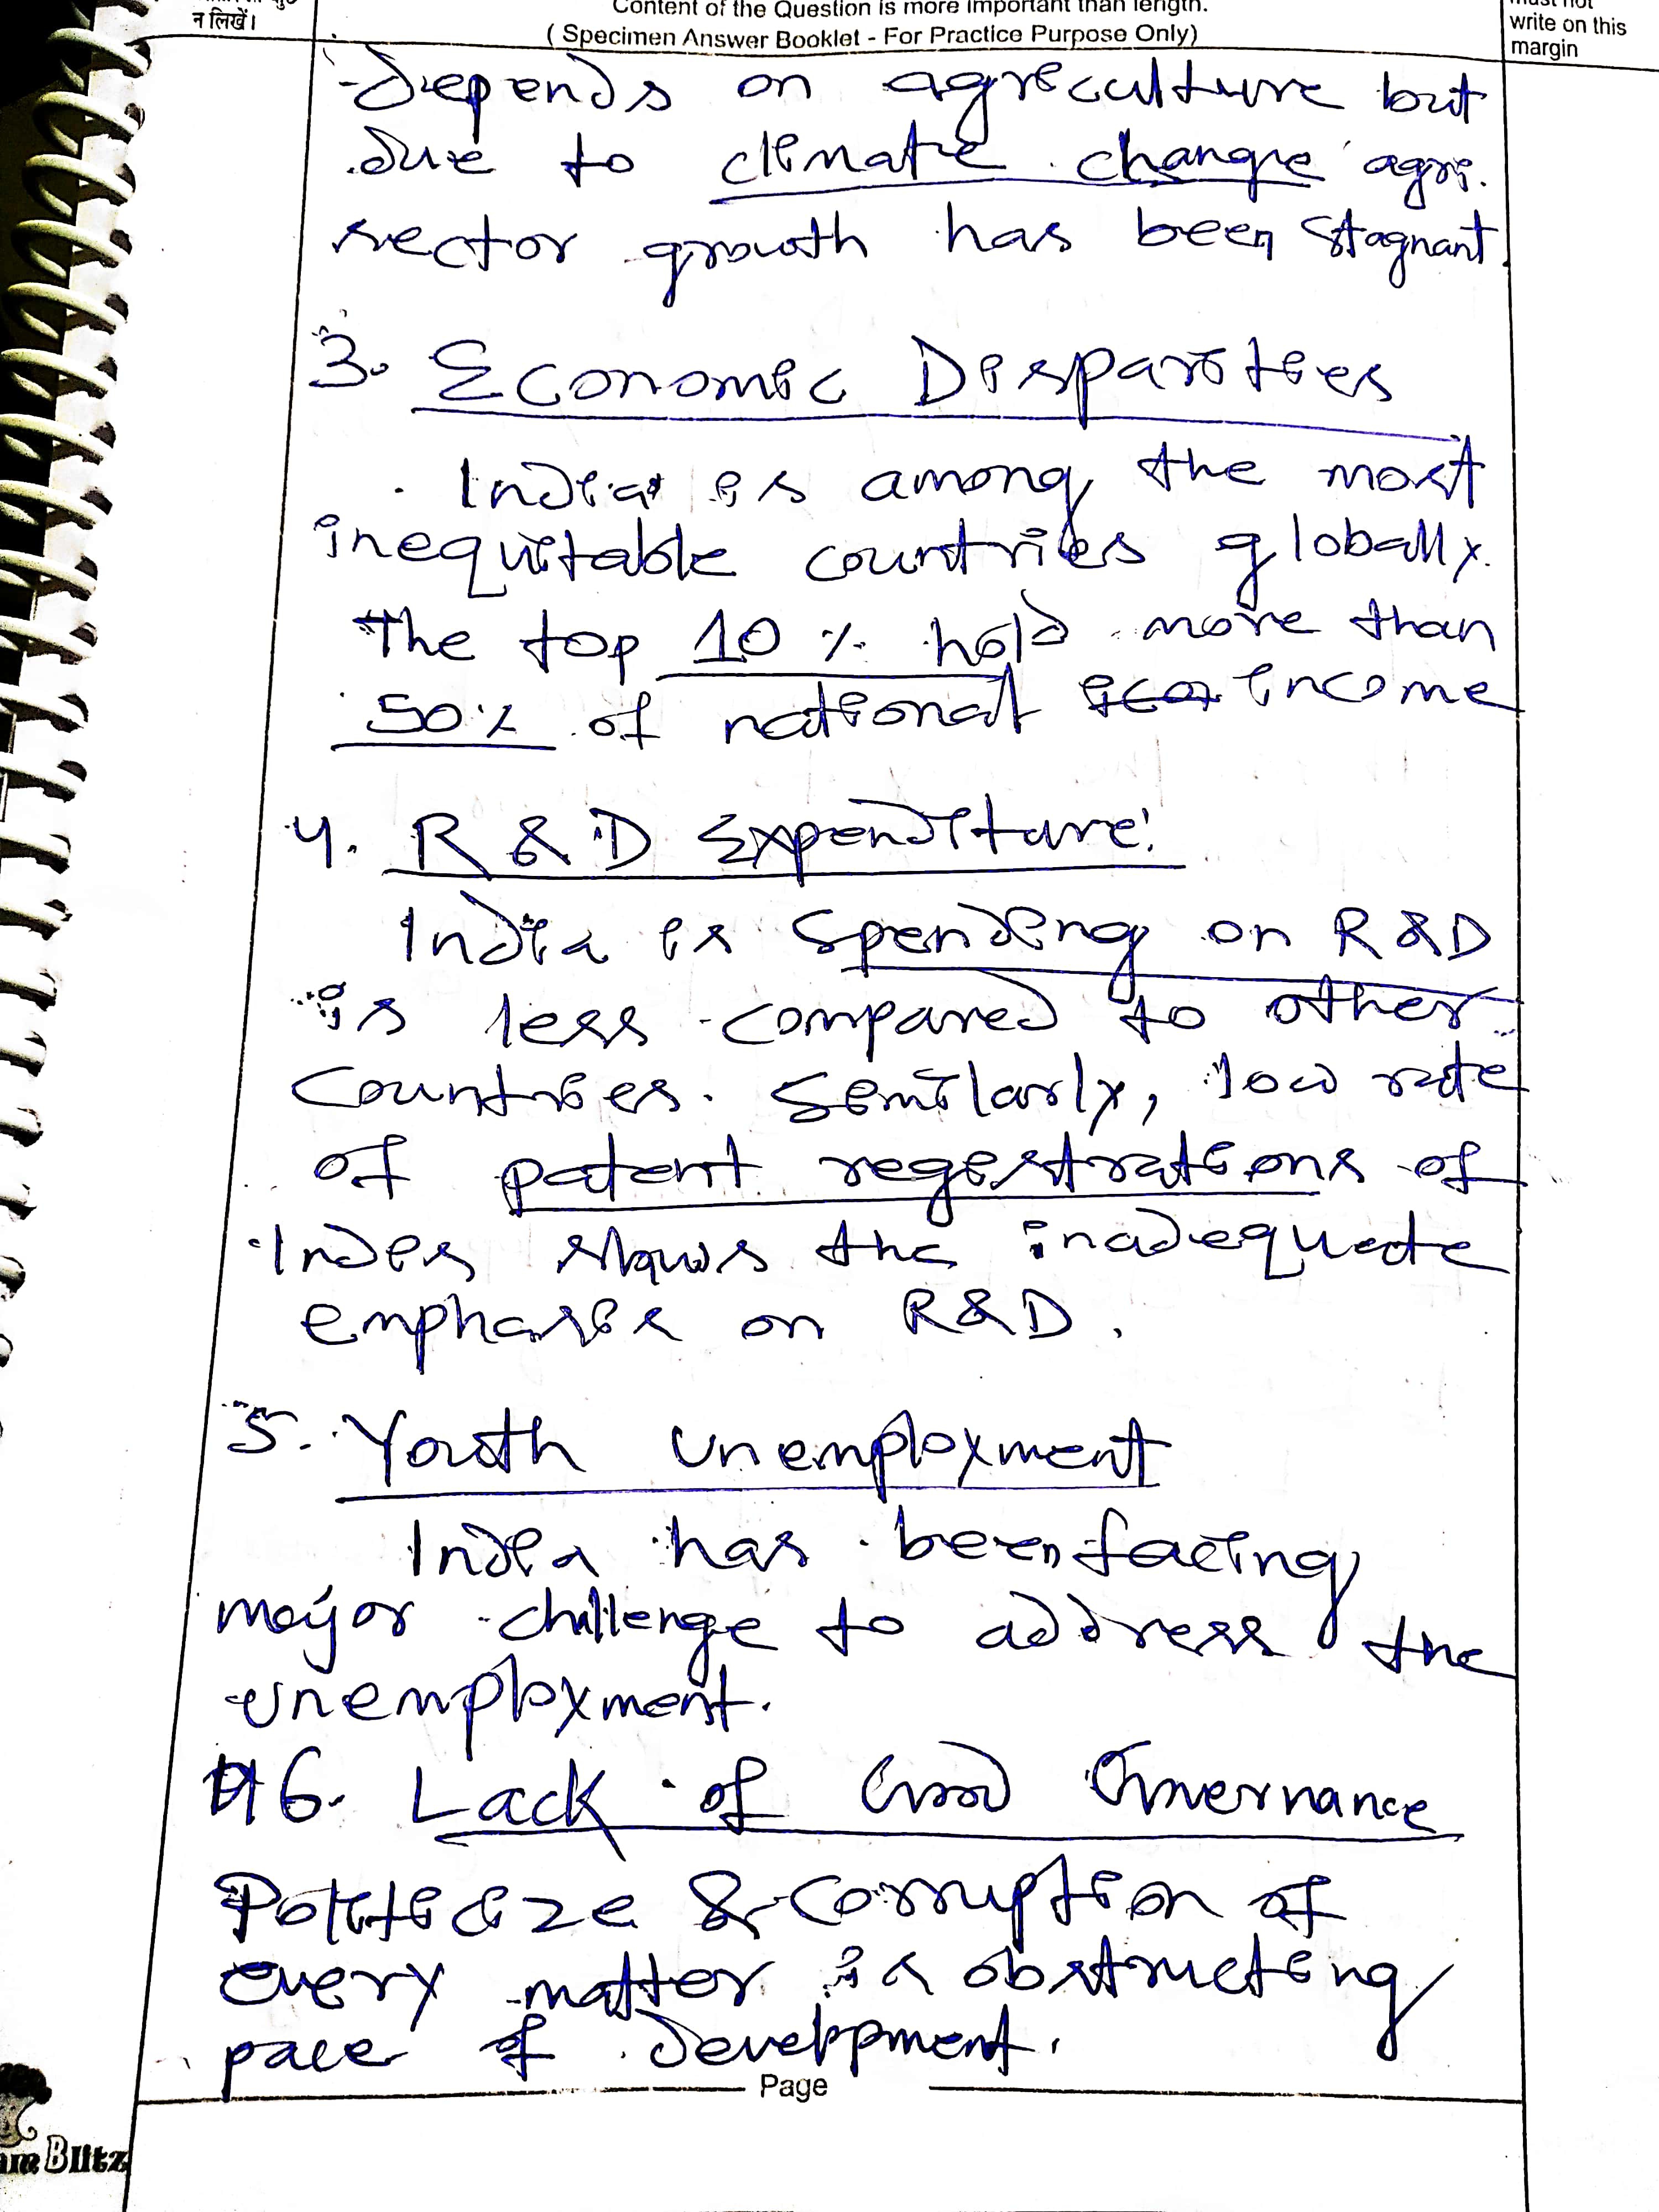 न लिखें।
Content of the Question is more important than length.
( Specimen Answer Booklet - For Practice Purpose Only)
must not
write on this
margin
depends on agreculture but
due to climate change agri.
sector growth has been stagnant
3. Economic Disparities
India is among the most
inequitable countries globally.
The top 10 % hold more than
50% of national income
4. R & D Expenditure:
India is spending on R&D
is less compared to other
countries. Similarly, low rate
of patent registrations of
India shows the inadequate
emphasis on R&D.
5. Youth unemployment
India has been facing
major challenge to address the
unemployment.
6. Lack of Good Governance
Politicize & corruption of
every matter is obstructing
pace of development.
Page
Blitz